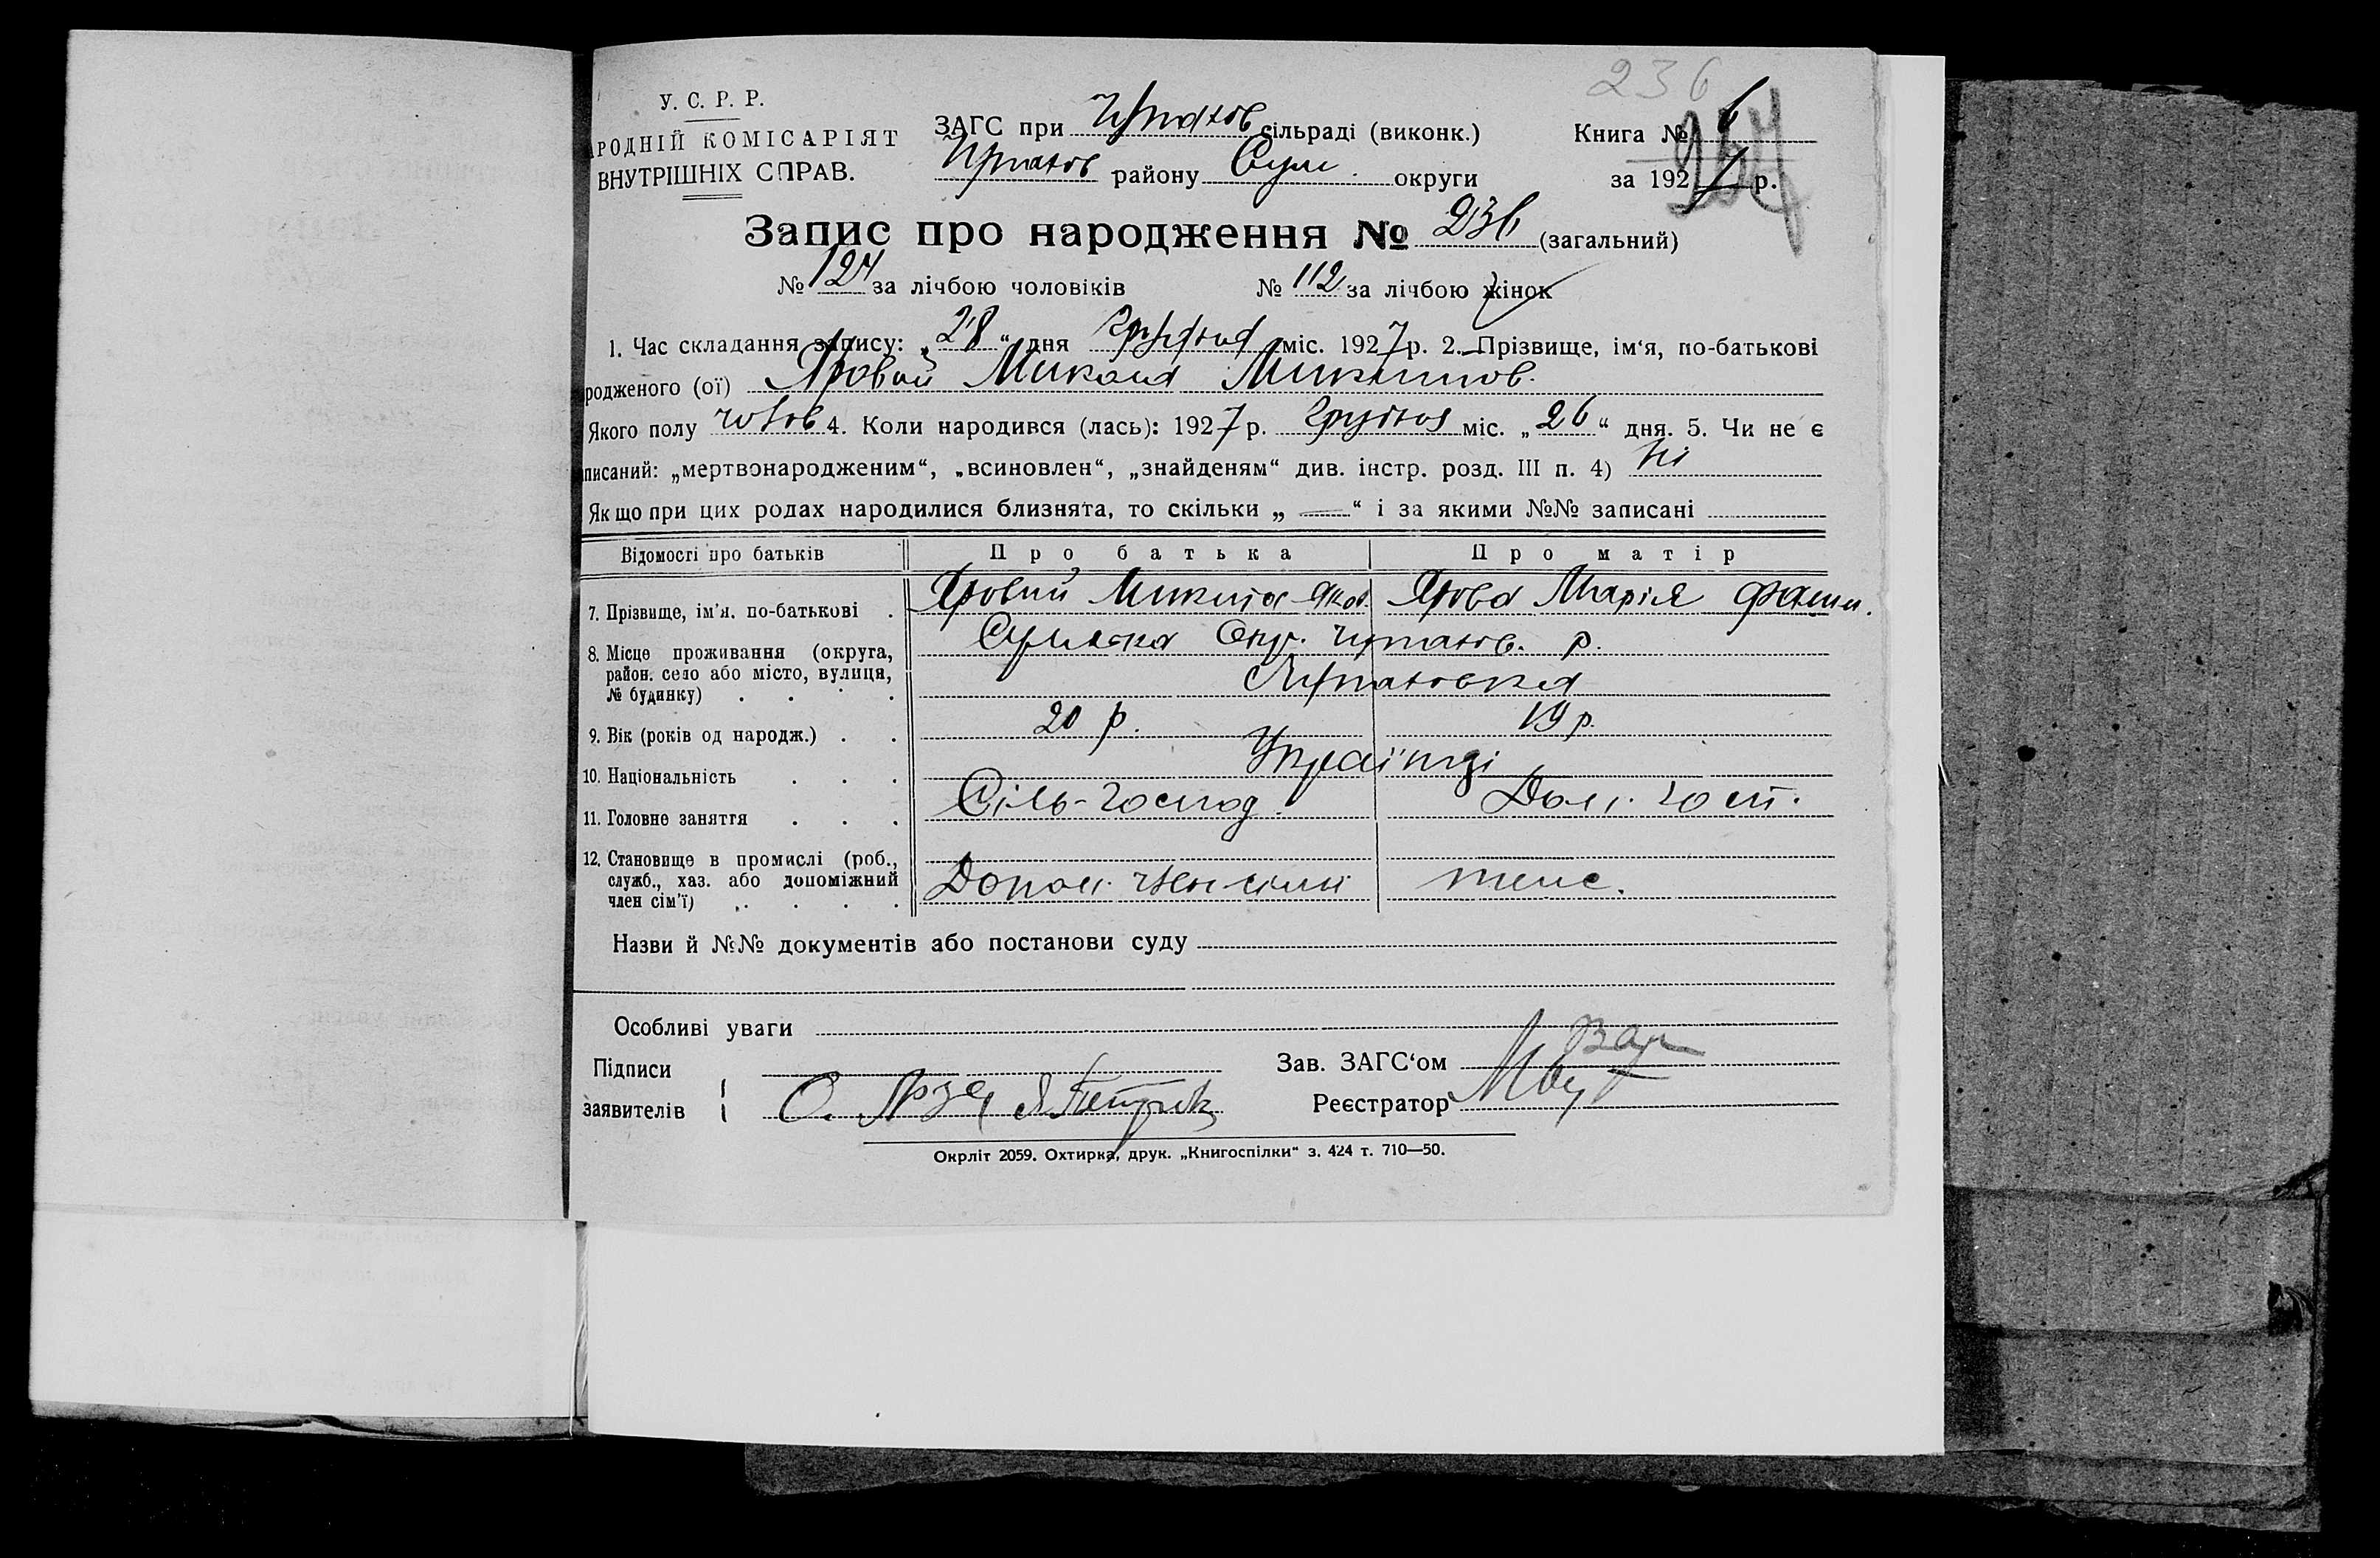 236
У. С. Р. Р.
РОДНІЙ КОМІСАРІЯТ
ВНУТРІШНІХ СПРАВ.
ЗАГС при Чупахов сільраді (виконк.)
Чупахов району Сум. округи
Книга № 6
за 1927 р.
Запис про народження № 236 (загальний)
№ 124 за лічбою чоловіків № 112 за лічбою жінок
1. Час складання запису: „28“ дня грудня міс. 1927 р. 2. Прізвище, ім‘я, по-батькові
родженого (ої) Яровий Микола Микитов.
Якого полу чолов 4. Коли народився (лась): 1927 р. грудня міс. „26“ дня. 5. Чи не є
писаний: „мертвонародженим“, „всиновлен“, „знайденям“ див. інстр. розд. III п. 4) Ні
Якщо при цих родах народилися близнята, то скільки „ — “ і за якими №№ записані
Відомості про батьків Про батька Про матір
7. Прізвище, ім‘я, по-батькові . Яровий Микита Яков. Ярова Марія
8. Місце проживання (округа, район, село або місто, вулиця, № будинку) . . . . Сумська Окр. Чупахов. р.
Чупаховка
9. Вік (років од народж.) . . 20 р. 19 р.
10. Національність . . . Українці
11. Головне заняття . . . Сіль-господ. Дом. госп.
12. Становище в промислі (роб., служб., хаз. або допоміжний член сім‘ї) . . . . Допом. член сімї теж.
Назви й №№ документів або постанови суду
Особливі уваги
Підписи
заявителів
Зав. ЗАГС‘ом
Реєстратор
Окрліт 2059. Охтирка, друк. „Книгоспілки“ з. 424 т. 710—50.